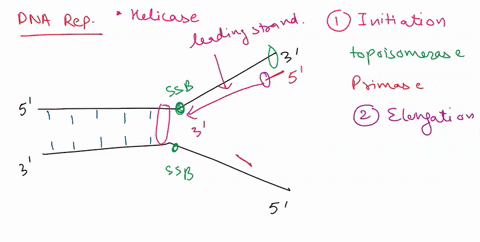 DNA Rep.
* Helicase
leading strand.
① Initiation
topoisomerase
Primase
② Elengation
3'
5'
SSB
5'
3'
3'
SSB
5'